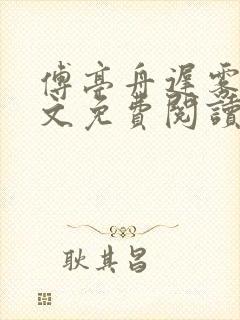 傅亭舟遲霧
文免費閱讀
耿其昌